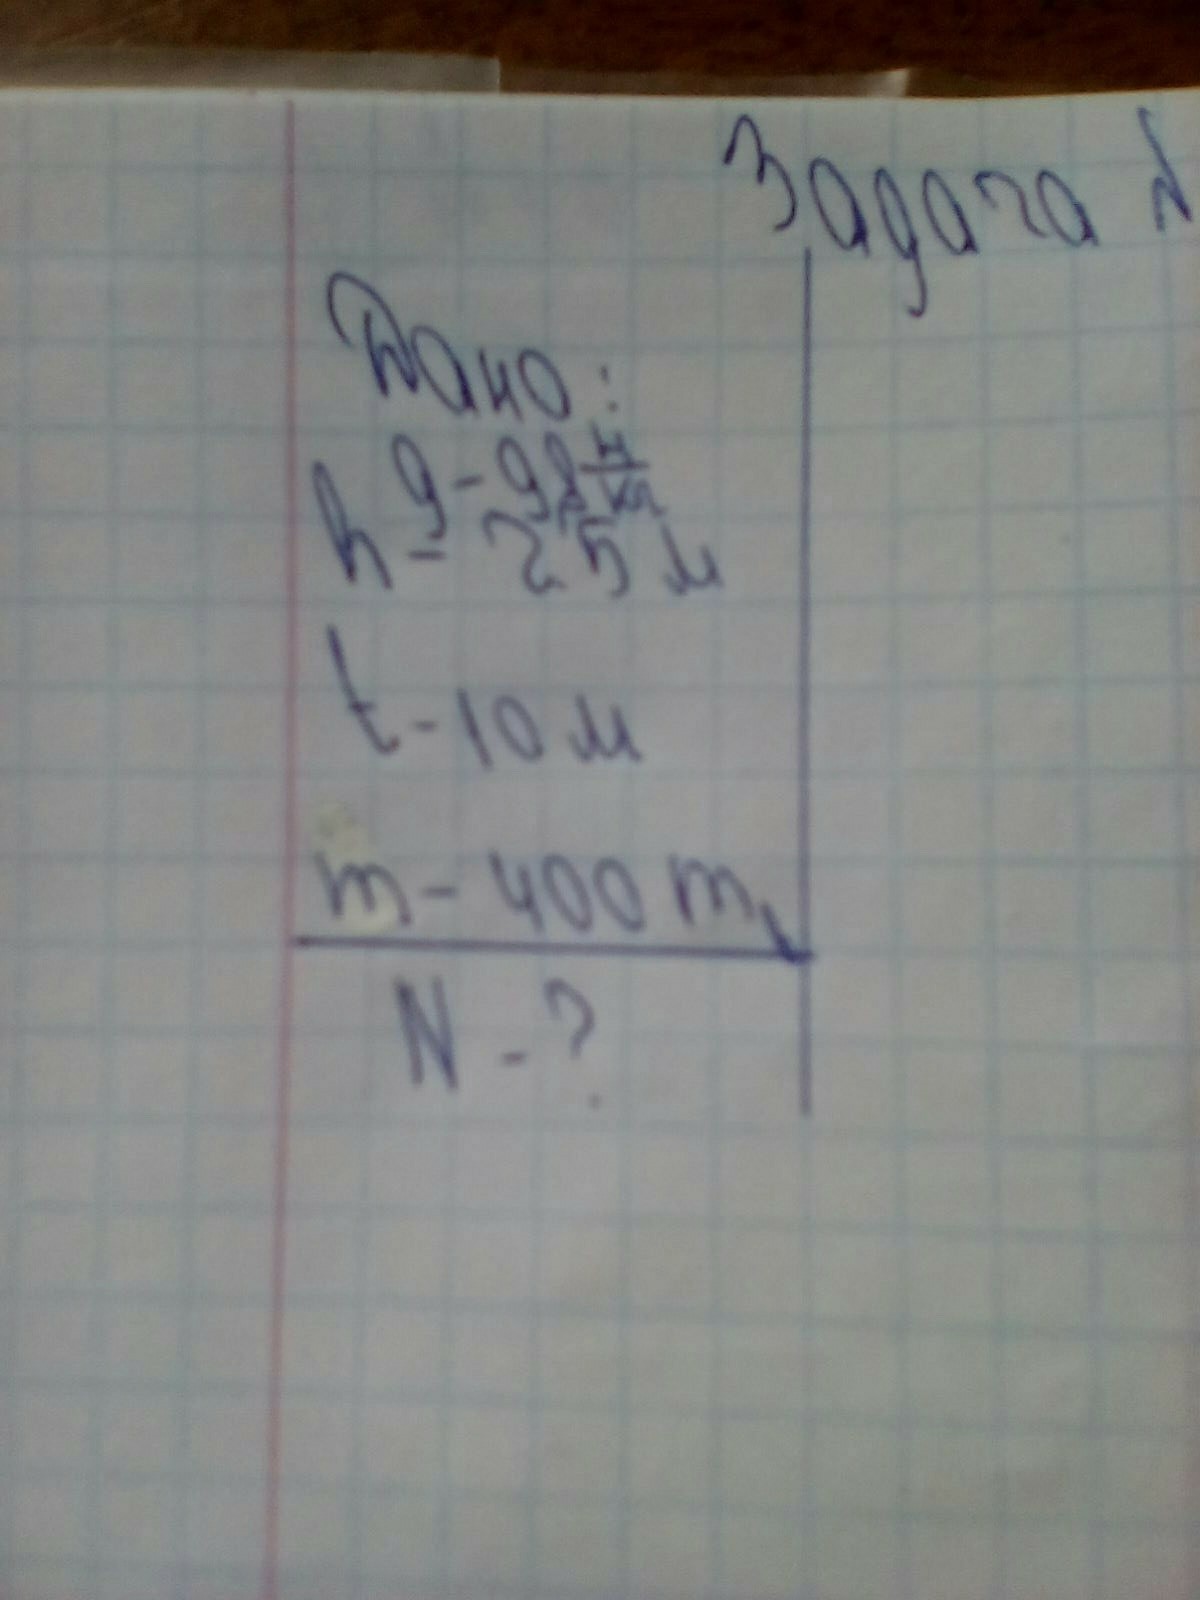 Задача №
Дано:
g - 9,8 н/кг
h - 25 м
t - 10 м
m - 400 т
N - ?